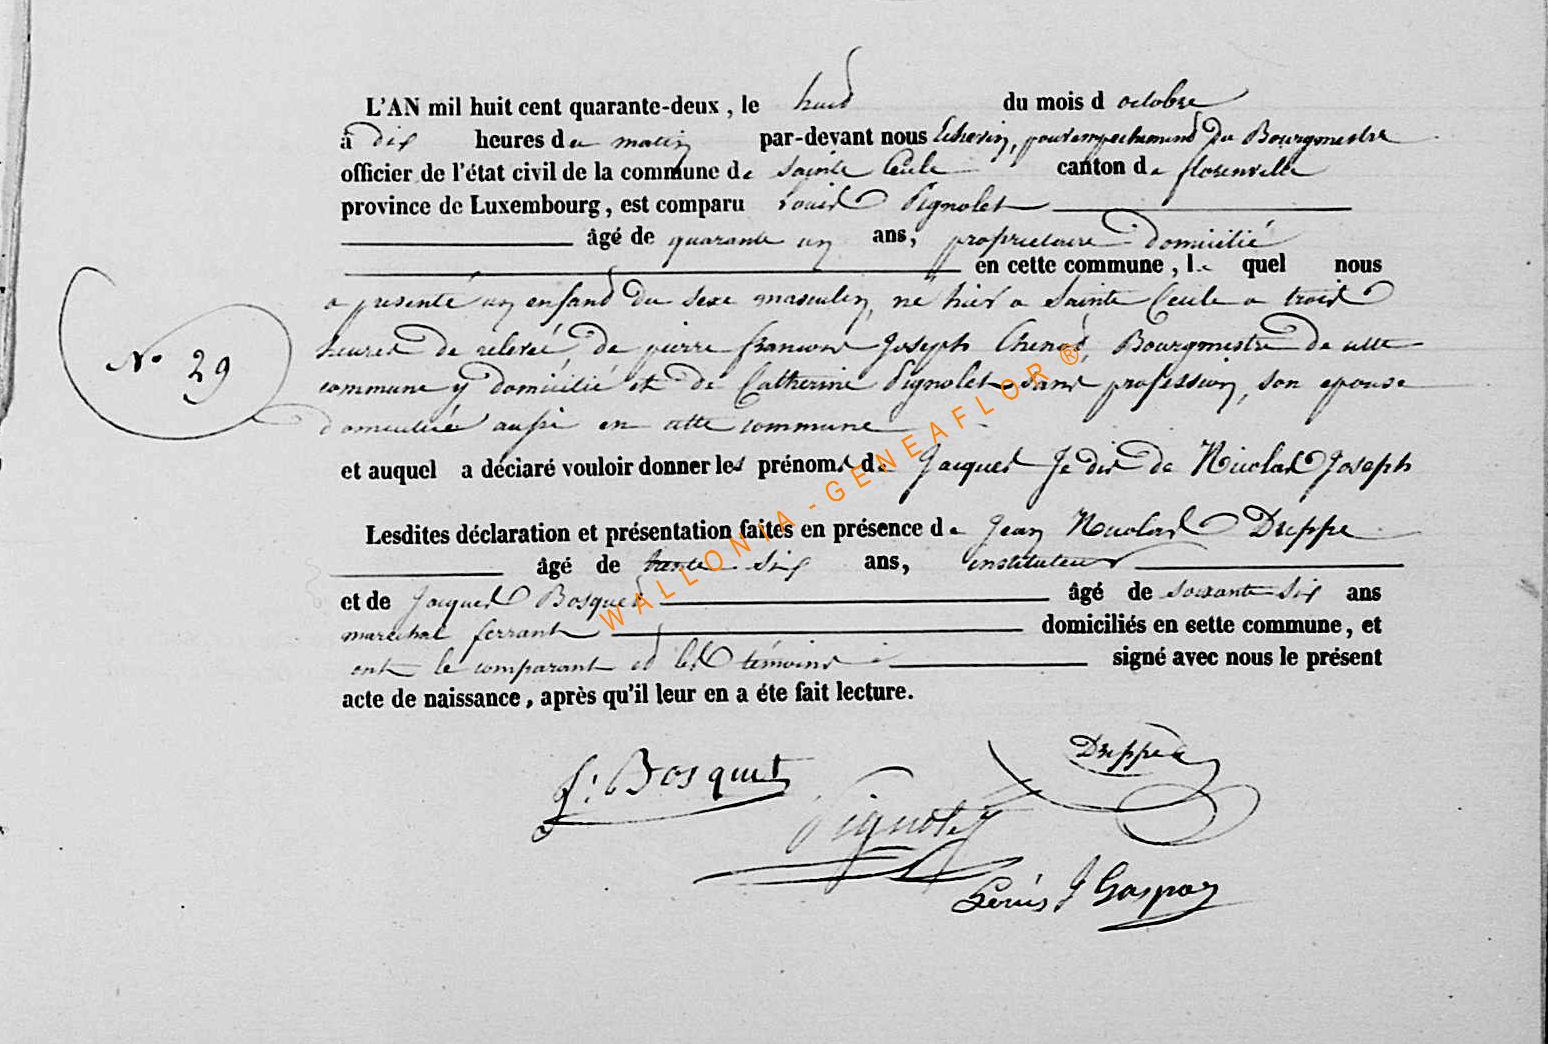 L'AN mil huit cent quarante-deux, le huit du mois d octobre
à dix heures du matin par-devant nous Echevin, pour empechement du Bourgmestre
officier de l'état civil de la commune de Sainte Cécile canton de florenville
province de Luxembourg, est comparu Louis Pignolet
âgé de quarante un ans, proprietaire domicilié
en cette commune, le quel nous
a presenté un enfant du sexe masculin, né hier a Sainte Cecile a trois
heures de relevée, de pierre francois Joseph Bourgmestre de cette
N° 29
commune y domicilié et de Catherine Pignolet sans profession, son epouse
domiciliée aussi en cette commune
et auquel a déclaré vouloir donner les prénoms de Jacques Je dis de Nicolas Joseph
Lesdites déclaration et présentation faites en présence de Jean Nicolas Dreppe
âgé de trente six ans, instituteur
et de Jacques Bosquet âgé de soixante six ans
marechal ferrant domiciliés en cette commune, et
ont le comparant et les témoins signé avec nous le présent
acte de naissance, après qu'il leur en a éte fait lecture.
J. Bosquet
Dreppe
Pignolet
J Gaspar
WALLONIA-GENEAFLOR ®